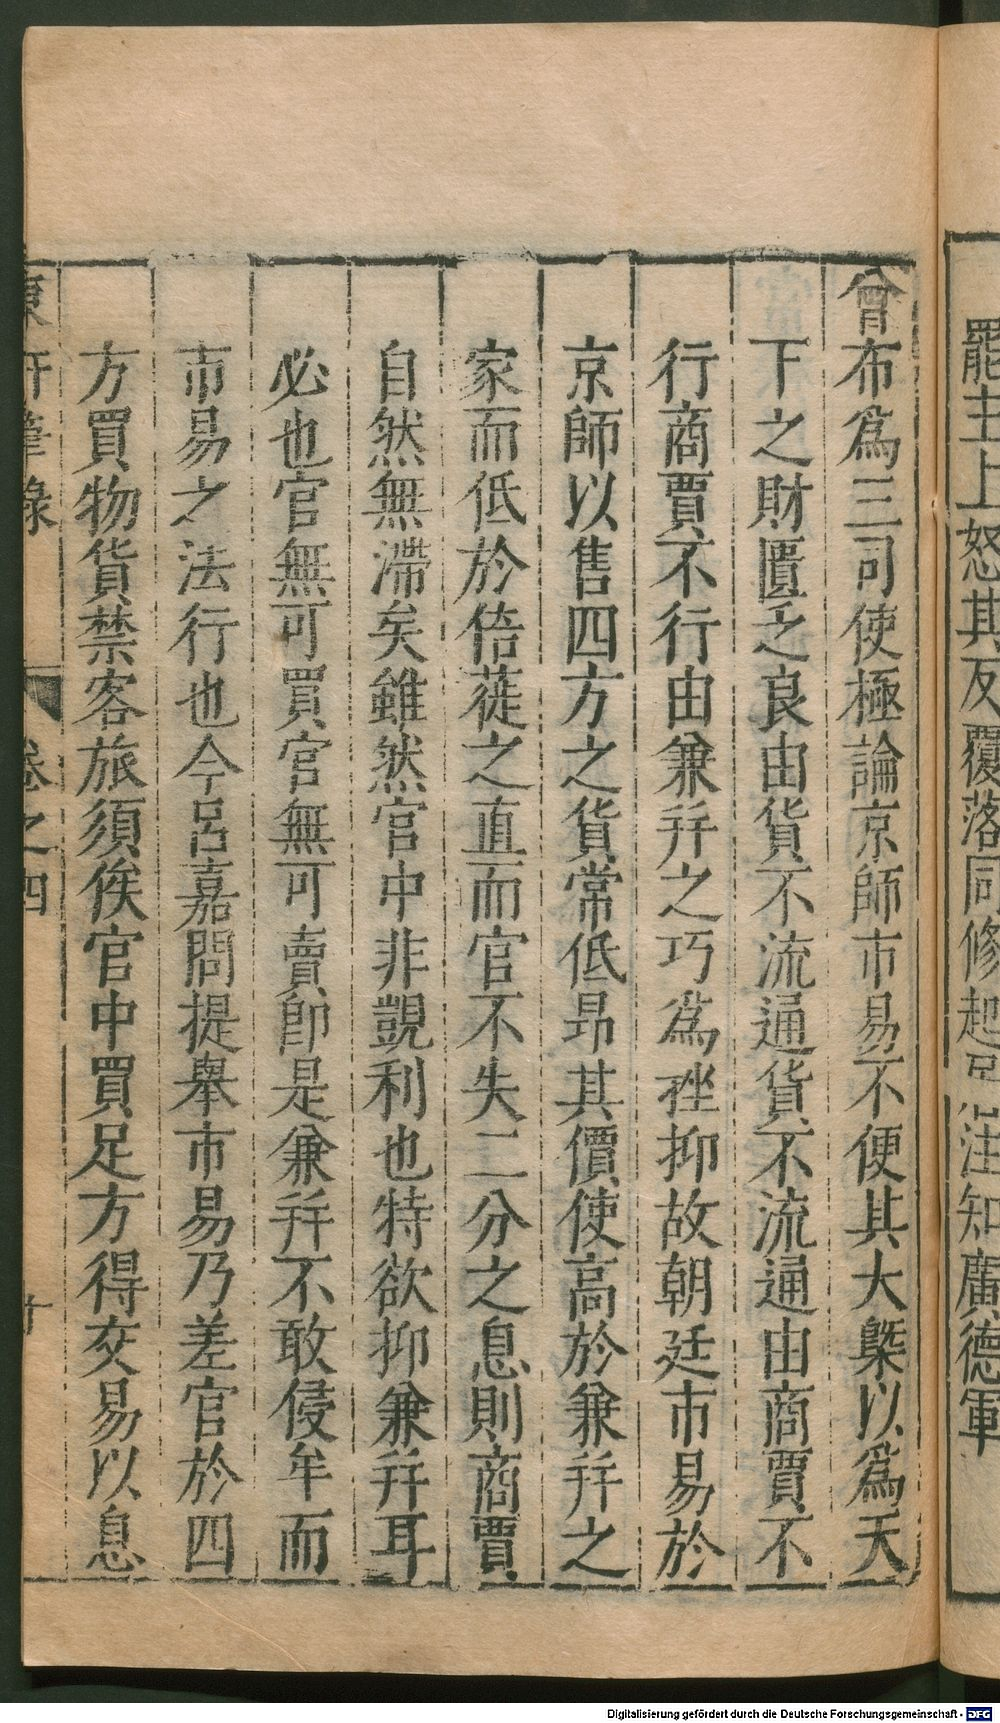 罷主上怒其反覆落同修起居注知廣德軍
曾布為三司使極論京師市易不便其大槩以為天
下之財匱乏良由貨不流通貨不流通由商賈不
行商賈不行由兼幷之巧為挫抑故朝廷市易於
京師以售四方之貨常低昂其價使高於兼幷之
家而低於倍蓰之直而官不失二分之息則商賈
自然無滯矣雖然官中非覬利也特欲抑兼幷耳
必也官無可買官無可賣卽是兼幷不敢侵牟而
市易之法行也今呂嘉問提舉市易乃差官於四
方買物貨禁客旅須俟官中買足方得交易以息
東軒筆錄 卷之四
Digitalisierung gefördert durch die Deutsche Forschungsgemeinschaft - DFG